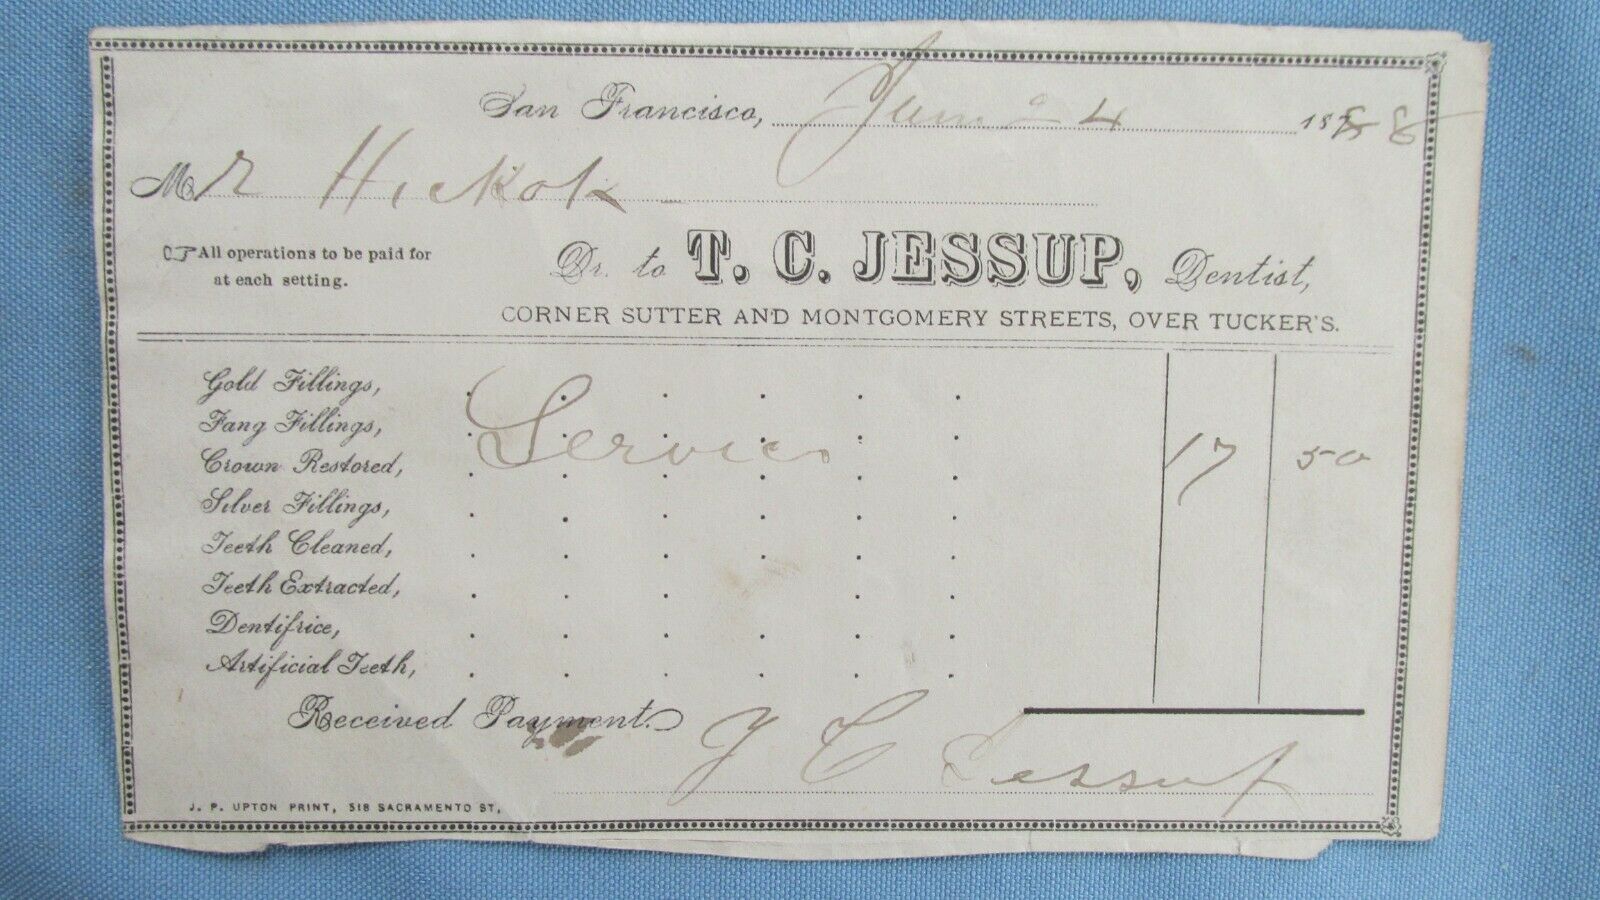 San Francisco, June 4 1888
Mr Hickok
All operations to be paid for
at each setting.
Dr. to T. C. JESSUP, Dentist,
CORNER SUTTER AND MONTGOMERY STREETS, OVER TUCKER'S.
Gold Fillings,
Fang Fillings,
Services 17 50
Crown Restored,
Silver Fillings,
Teeth Cleaned,
Teeth Extracted,
Dentifrice,
Artificial Teeth,
Received Payment.
T C Jessup
J. P. UPTON PRINT, 518 SACRAMENTO ST.